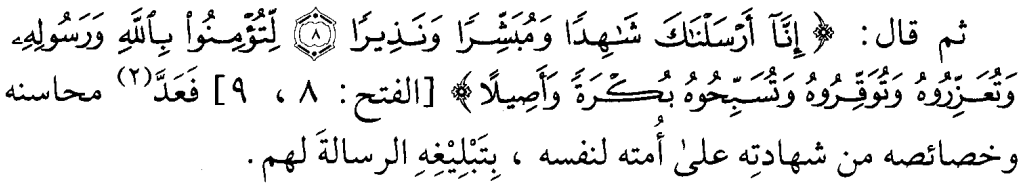 ثم قال: ﴿ إِنَّآ أَرْسَلْنَٰكَ شَٰهِدًا وَمُبَشِّرًا وَنَذِيرًا ۝٨ لِّتُؤْمِنُوا۟ بِٱللَّهِ وَرَسُولِهِۦ
وَتُعَزِّرُوهُ وَتُوَقِّرُوهُ وَتُسَبِّحُوهُ بُكْرَةً وَأَصِيلًا ﴾ [الفتح: ٨ ، ٩] فَعَدَّ(٢) محاسنه
وخصائصه من شهادتِه علىٰ أُمته لنفسه ، بِتَبْلِيْغِهِ الرسالةَ لهم.